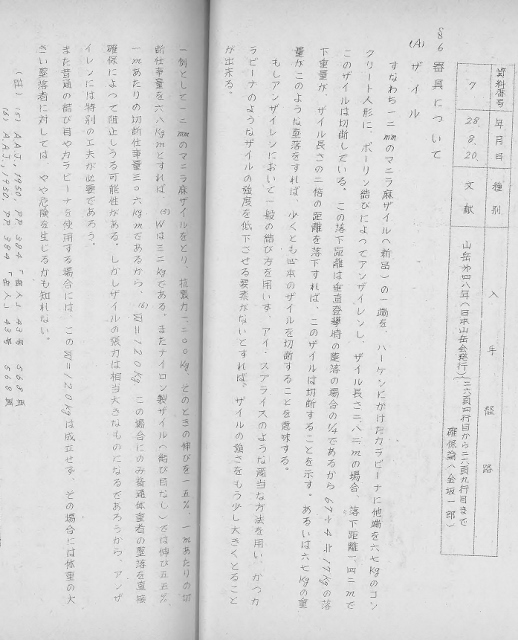 資料番号 年月日 種別 入手経路
7 28.8.20. 文献 山岳第四八年（日本山岳会発行）
確保論（金坂一郎）
§6 器具について
(A) ザイル
すなわち一二mmのマニラ麻ザイル（新品）の一端を、ハーケンにかけたカラビナに他端を六七kgのコン
クリート人形に、ボーリン結びによってアンザイレンし、ザイル長さ二.八二mの場合、落下距離一.四二mで
このザイルは切断している。この落下距離は垂直登攀時の墜落の場合の¼であるから 67÷4≒17kg の落
下重量が、ザイル長さの二倍の距離を落下すれば、このザイルは切断することを示す。あるいは六七kgの重
量がこのような墜落をすれば、少くとも四本のザイルを切断することを意味する。
もしアンザイレンにおいて一般の結び方を用いず、アイ・スプライスのような適当な方法を用い、かつカ
ラビーナのようなザイルの強度を低下させる要素がないとすれば、ザイルの強さをもう少し大きくとること
が出来る。
一例として一二mmのマニラ麻ザイルをとり、抗張力一二〇〇kg、そのときの伸びを一五%、一mあたりの切
断仕事量を六八kgmとすれば、(5) Wは三二kgである。またナイロン製ザイル（結び目なし）では伸び五五%
一mあたりの切断仕事量三〇六kgmであるから、(6) W=120kg この場合にのみ普通体重者の墜落を直接
確保によって阻止しうる可能性がある。しかしザイルの張力は相当大きなものになるであろうから、アンザ
イレンには特別の工夫が必要であろう。
また普通の結び目やカラビーナを使用する場合には、この W=120kg は成立せず、その場合には体重の大
きい墜落者に対しては、やや危険を生じるかも知れない。
(註) (5) AAJ, 1950, PP 384 「岳人」 43号 568頁
(6) AAJ, 1950, PP 384 「岳人」 43号 568頁